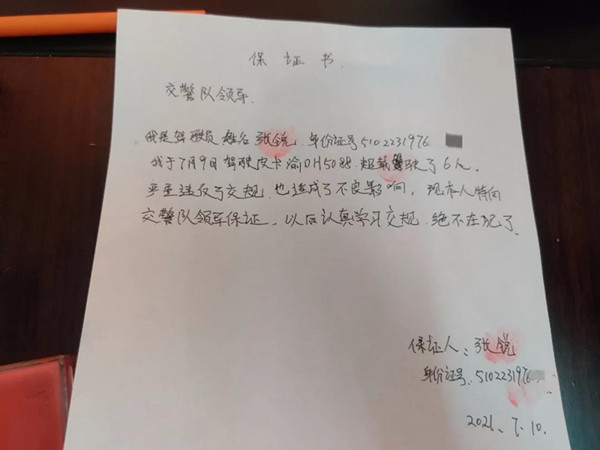 保证书.
交警队领导.
我是驾驶员 姓名张锐. 身份证号5102231976
我于7月9日驾驶皮卡渝DH5088. 超载驾驶了6人.
严重违反了交规. 也造成了不良影响. 现本人特向
交警队领导保证. 以后认真学习交规. 绝不在犯了.
保证人:张锐
身份证号:5102231976
2021. 7. 10.